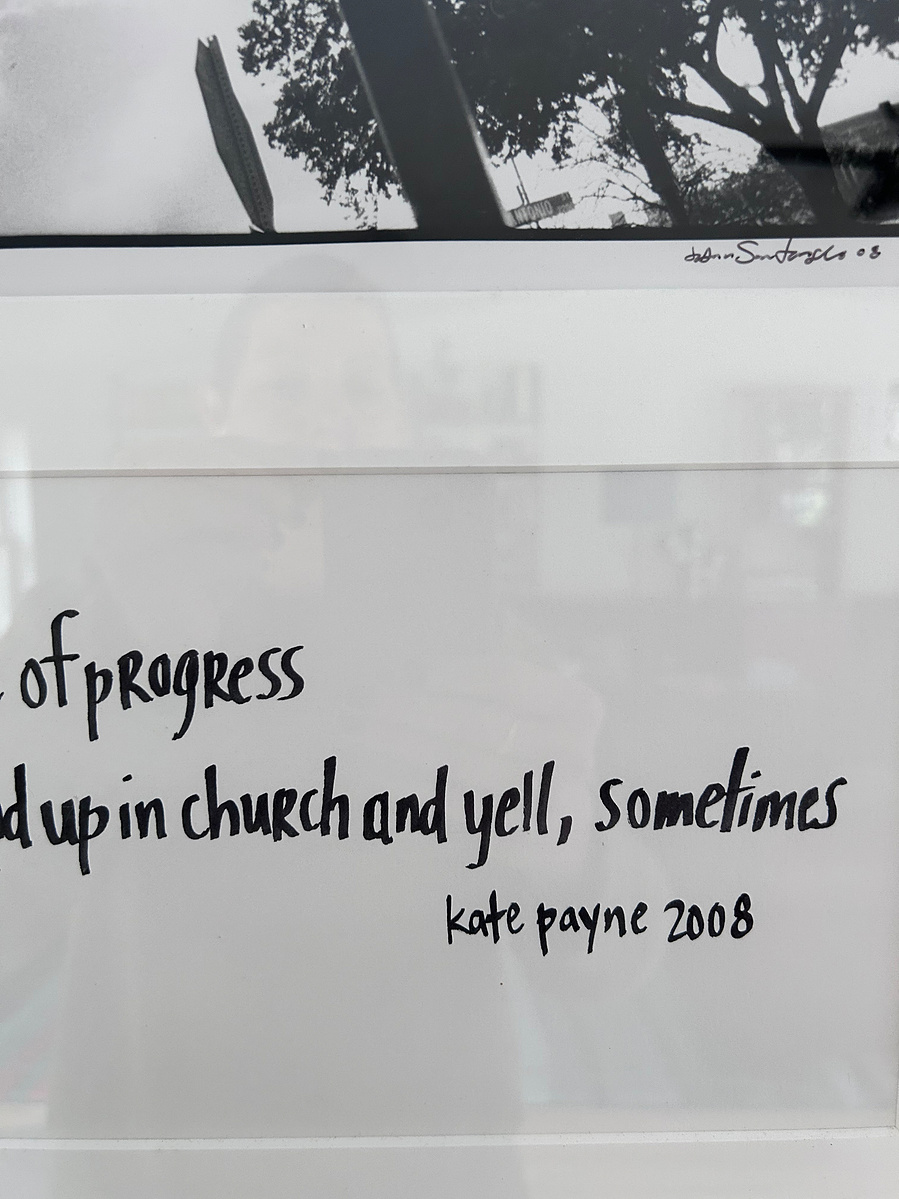 JoAnn Santangelo 08
of progress
d up in church and yell, sometimes
kate payne 2008